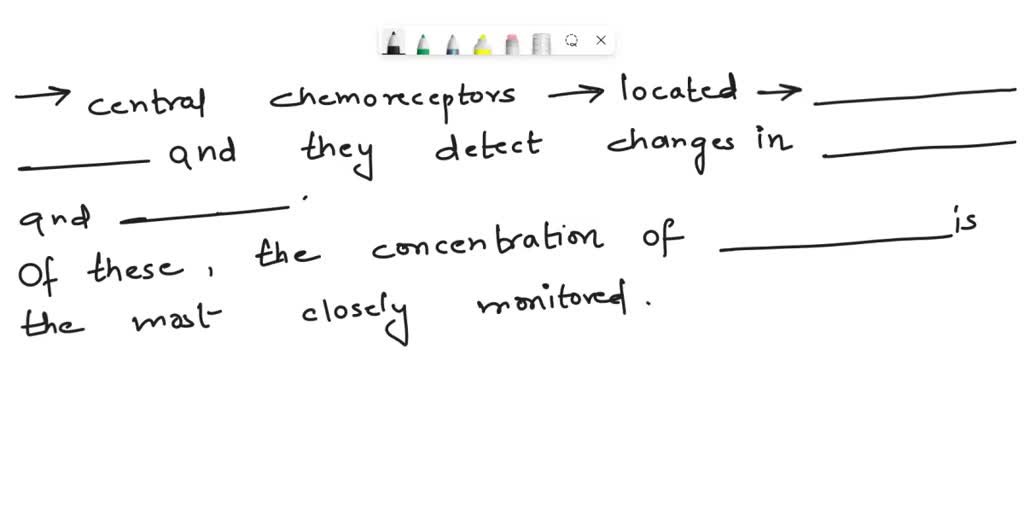 → central chemoreceptors → located → ________
________ and they detect changes in ________
and ________.
Of these, the concentration of ________ is
the most closely monitored.